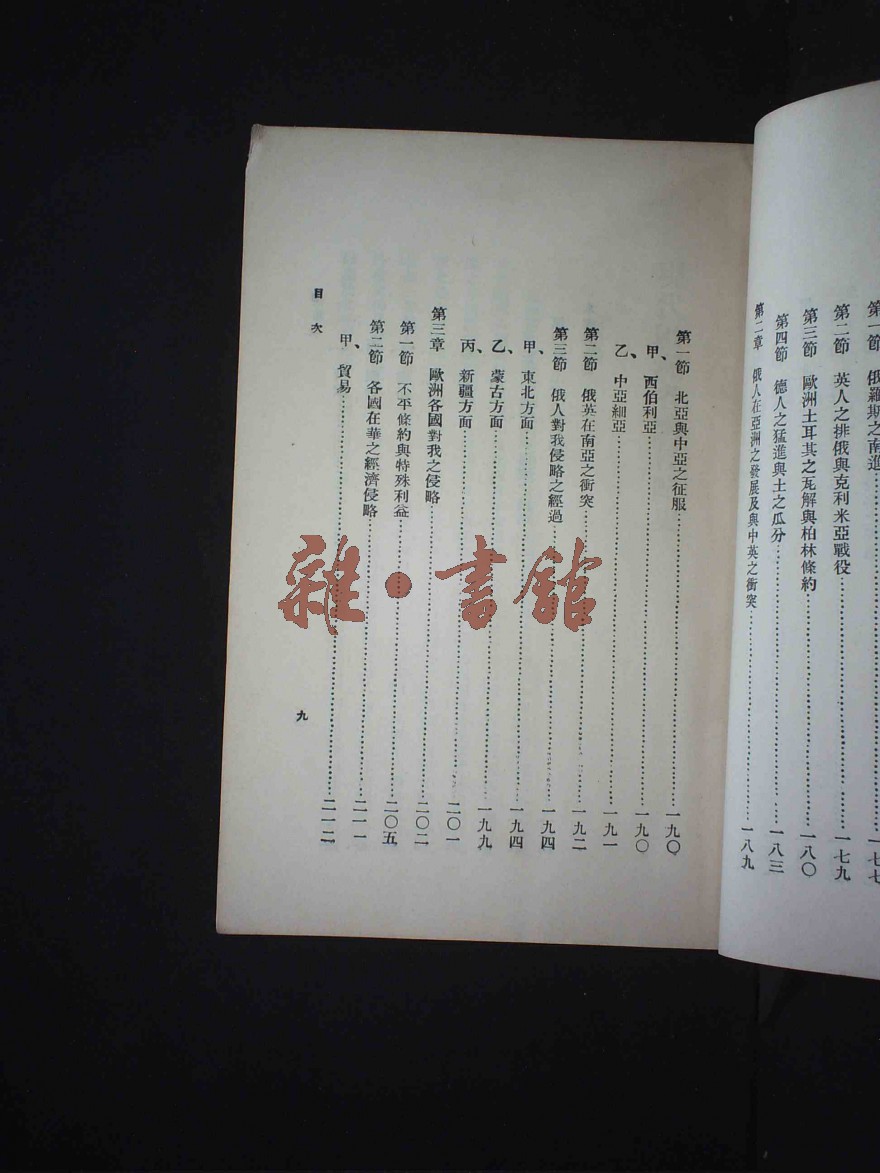 第一節 俄羅斯之南進……一七七
第二節 英人之排俄與克利米亞戰役……一七九
第三節 歐洲土耳其之瓦解與柏林條約……一八〇
第四節 德人之猛進與土之瓜分……一八三
第二章 俄人在亞洲之發展及與中英之衝突……一八九
第一節 北亞與中亞之征服……一九〇
甲、西伯利亞……一九〇
乙、中亞細亞……一九一
第二節 俄英在南亞之衝突……一九二
第三節 俄人對我侵略之經過……一九四
甲、東北方面……一九四
乙、蒙古方面……一九九
丙、新疆方面……二〇一
第三章 歐洲各國對我之侵略……二〇二
第一節 不平條約與特殊利益……二〇五
第二節 各國在華之經濟侵略……二一一
甲、貿易……二一二
目次
九
雜·書館